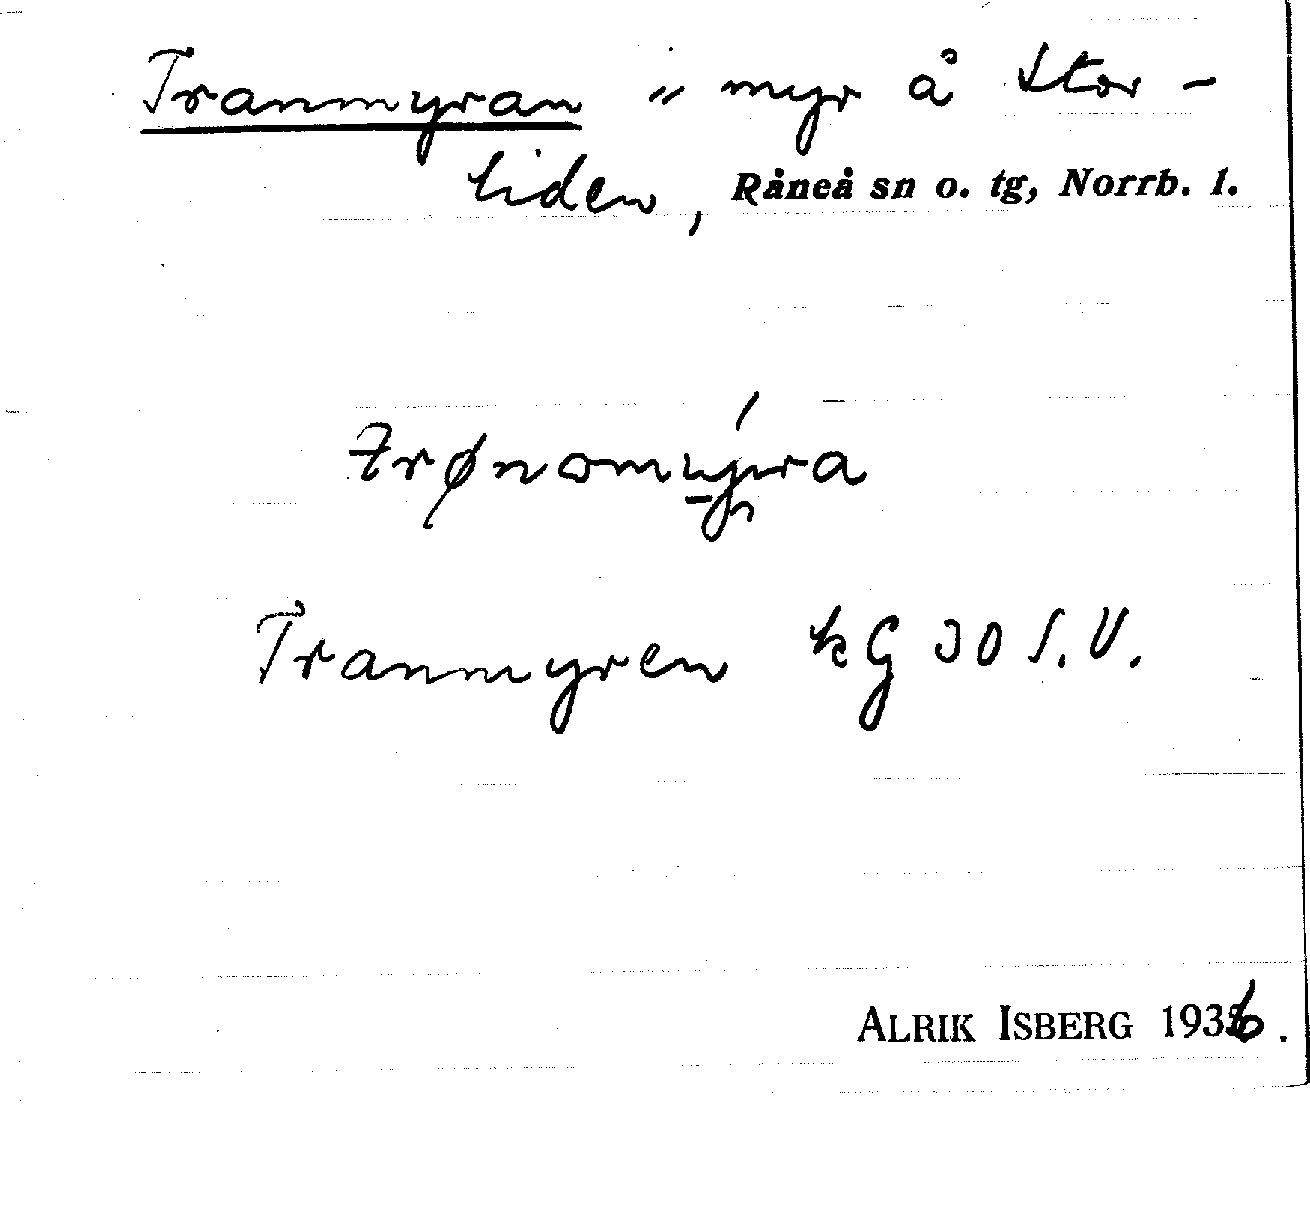 Tranmyran " myr å Stor-
liden, Råneå sn o. tg, Norrb. l.
trønomyra
Tranmyren kG 30 S.V.
ALRIK ISBERG 1936.